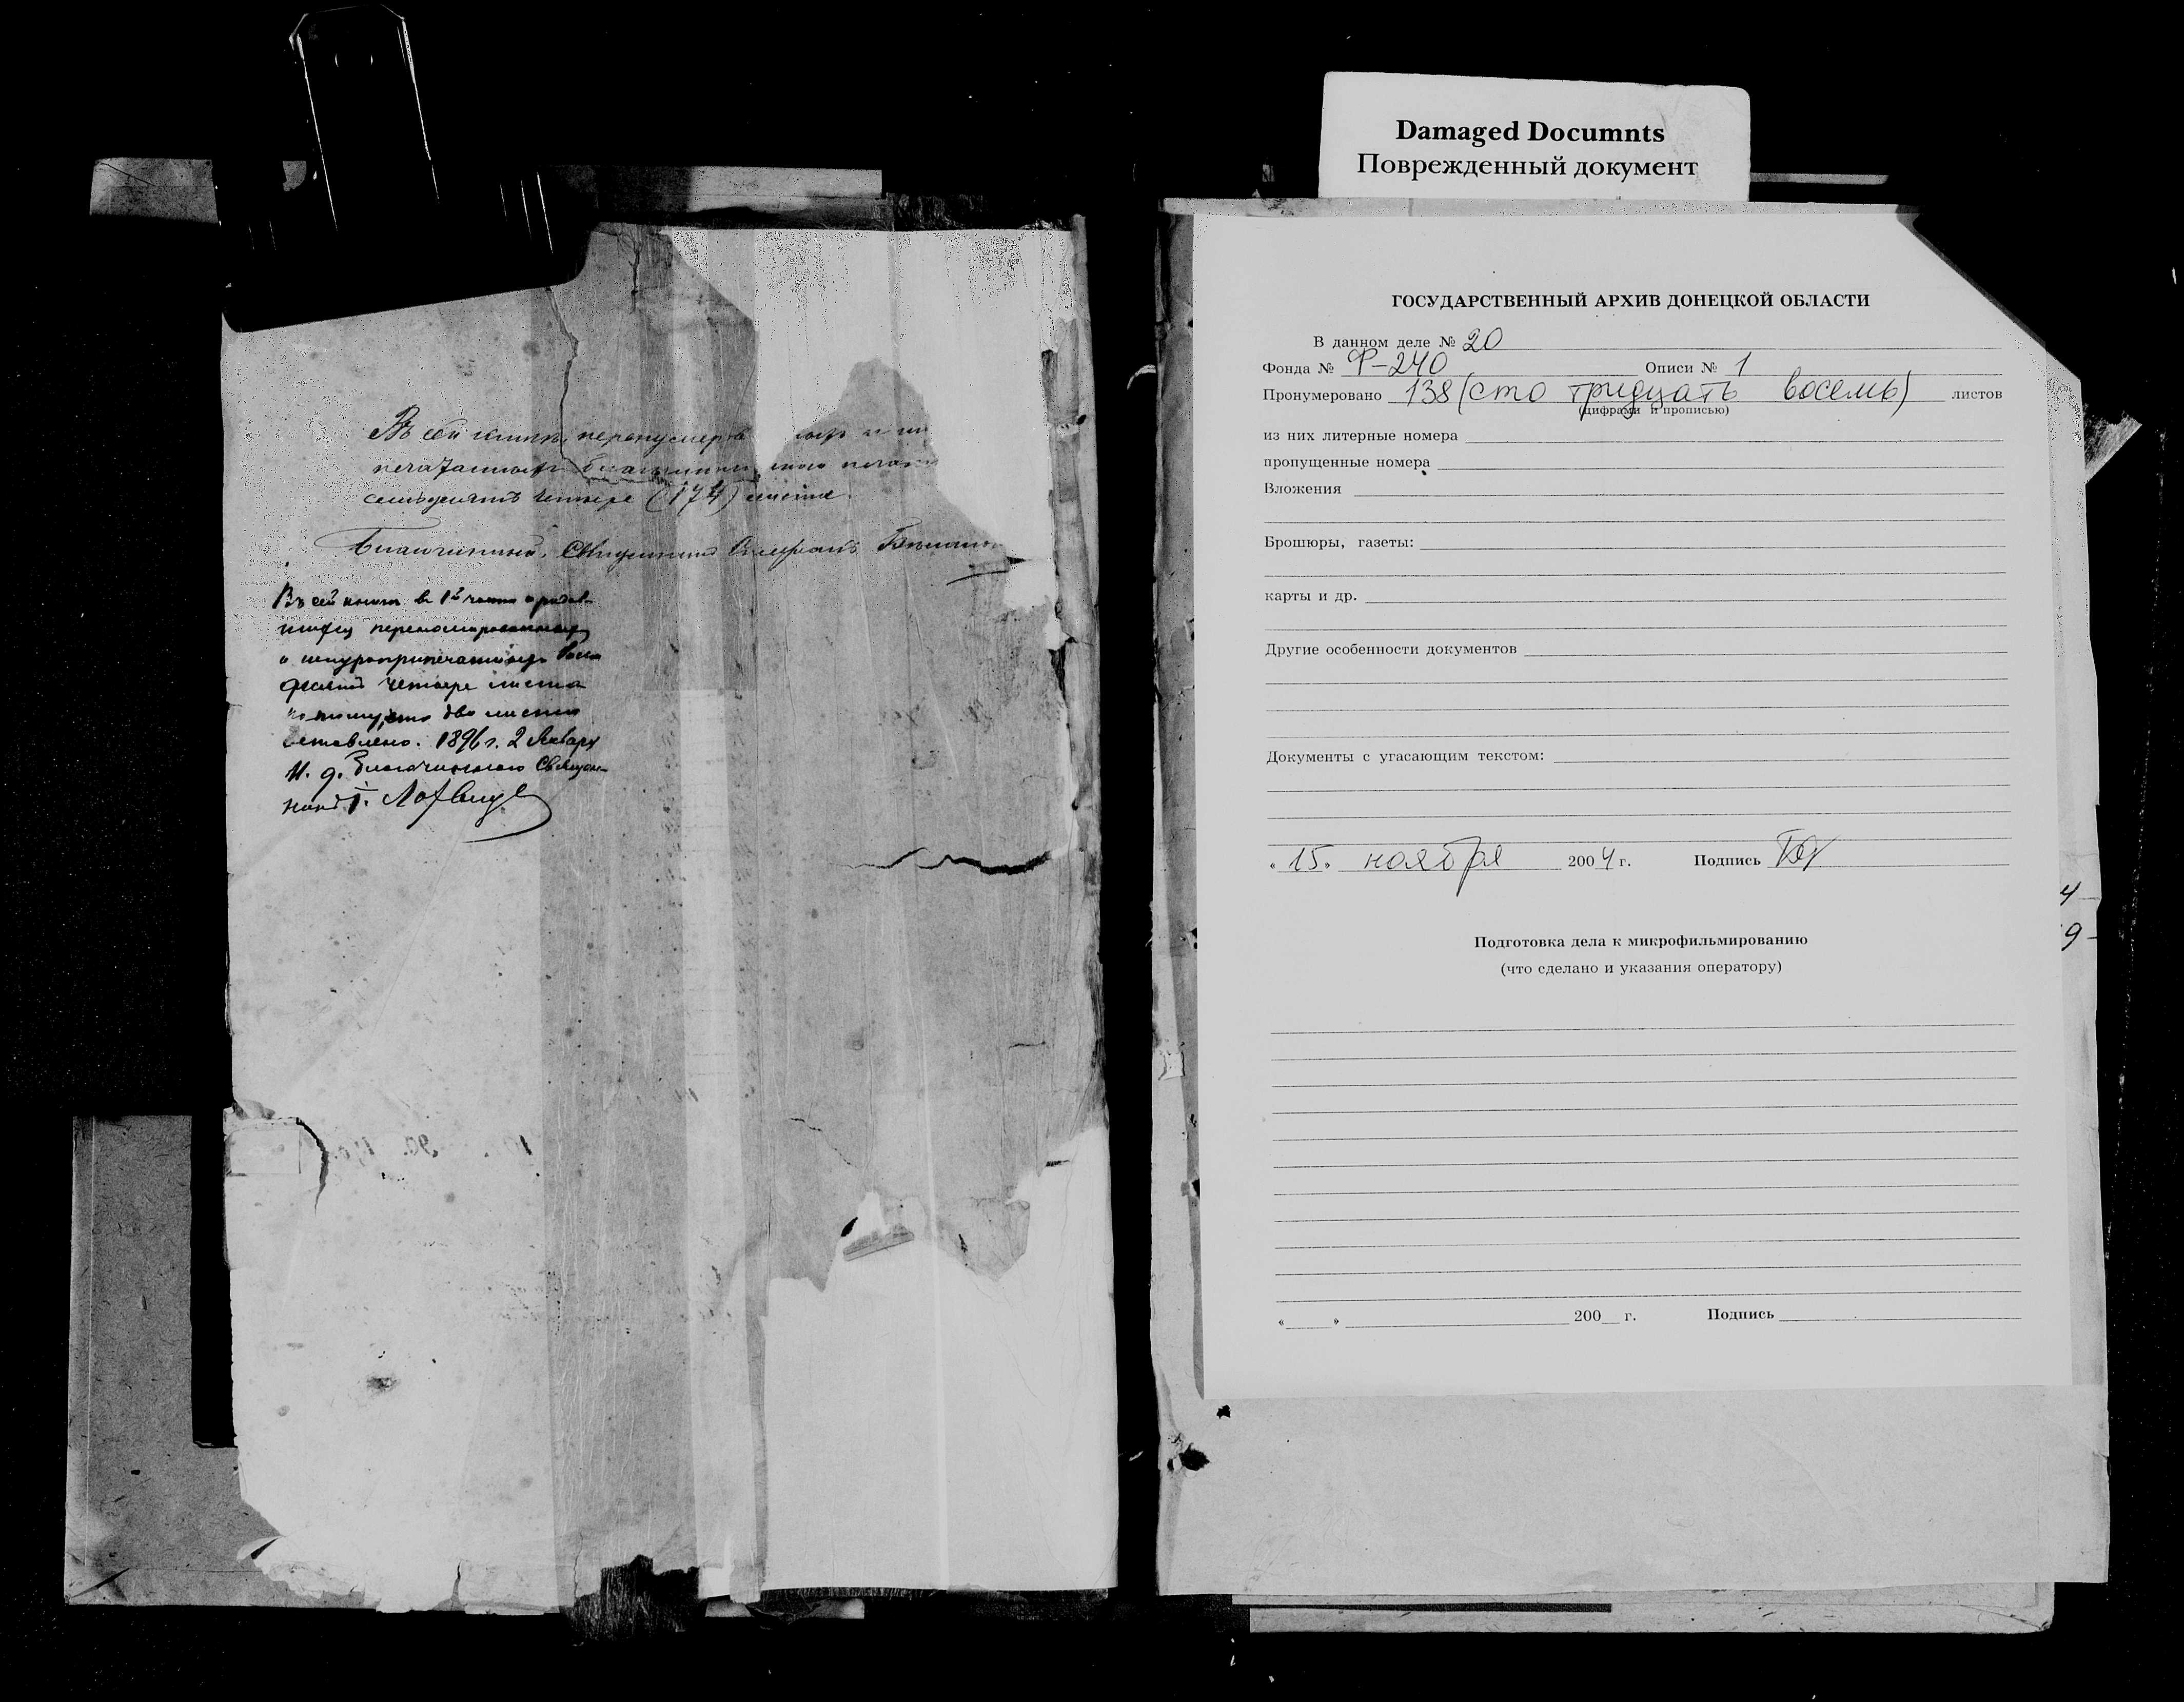 Въ сей книгѣ перенумерова
печатанныхъ
семьдесятъ четыре (174) листа.
Благочинный, Священникъ
Въ сей книгѣ въ 1й части о родив-
шихся перенумерованныхъ
и шнуроприпечатанныхъ
десятъ четыре листа
потому, что два листа
вставлено. 1896 г. 2 Января
И. д. Благочиннаго Священ-
никъ
Damaged Documnts
Поврежденный документ
ГОСУДАРСТВЕННЫЙ АРХИВ ДОНЕЦКОЙ ОБЛАСТИ
В данном деле № 20
Фонда № Ф-240 Описи № 1
Пронумеровано 138 (сто тридцать восемь) листов
(цифрами и прописью)
из них литерные номера
пропущенные номера
Вложения
Брошюры, газеты:
карты и др.
Другие особенности документов
Документы с угасающим текстом:
« 15 » ноября 2004 г. Подпись
4
9
Подготовка дела к микрофильмированию
(что сделано и указания оператору)
« » 200 г. Подпись